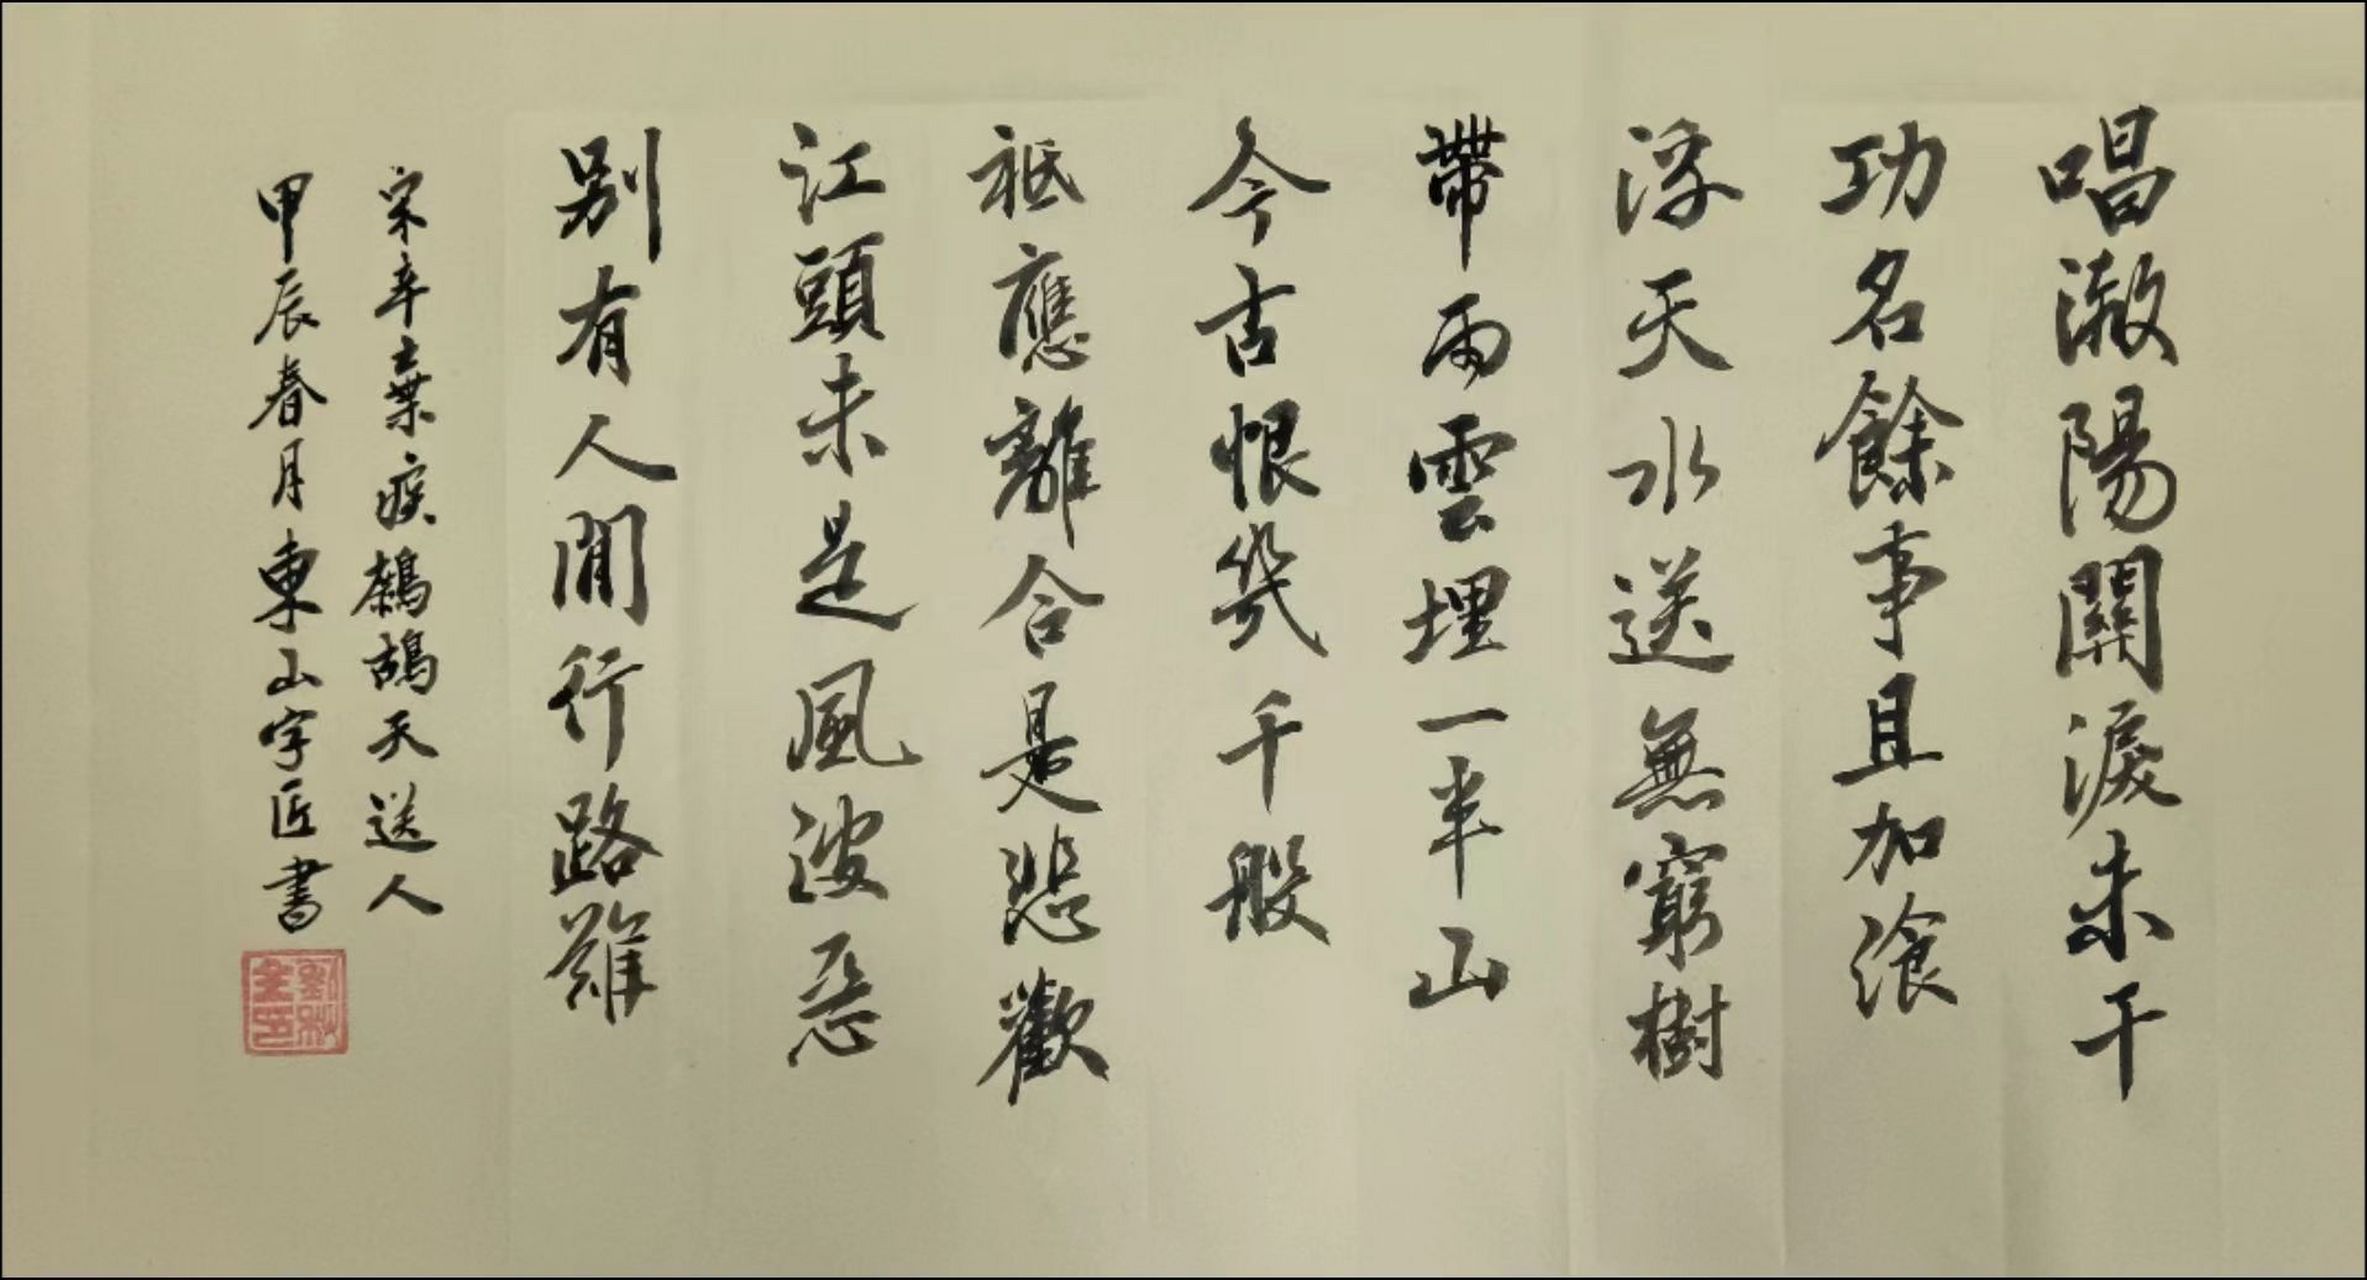 唱澈陽關淚未干
功名餘事且加湌
浮天水送無窮樹
帶雨雲埋一半山
今古恨幾千般
祗應離合是悲歡
江頭未是風波惡
別有人間行路難
宋辛棄疾鷓鴣天送人
甲辰春月東山字匠書